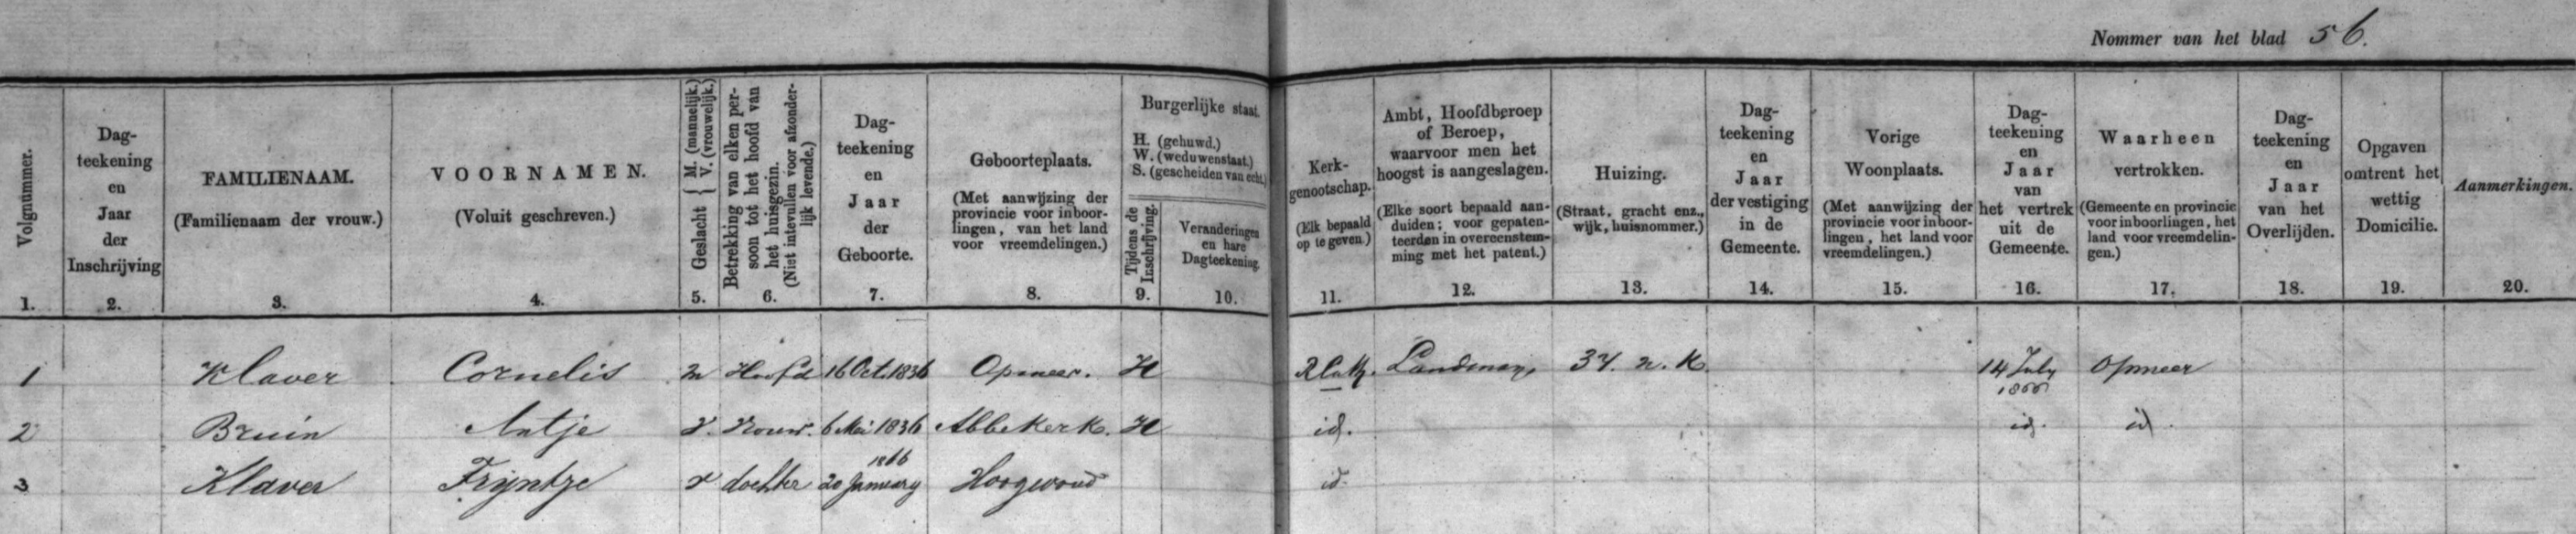 Nommer van het blad 56.
Volgnummer.
1.
Dag-
teekening
en
Jaar
der
Inschrijving
2.
FAMILIENAAM.
(Familienaam der vrouw.)
3.
VOORNAMEN.
(Voluit geschreven.)
4.
Geslacht { M. (mannelijk.)
V. (vrouwelijk.)
5.
Betrekking van elken per-
soon tot het hoofd van
het huisgezin.
(Niet intevullen voor afzonder-
lijk levende.)
6.
Dag-
teekening
en
Jaar
der
Geboorte.
7.
Geboorteplaats.
(Met aanwijzing der
provincie voor inboor-
lingen, van het land
voor vreemdelingen.)
8.
Burgerlijke staat.
H. (gehuwd.)
W. (weduwenstaat.)
S. (gescheiden van echt.)
Tijdens de
Inschrijving.
9.
Veranderingen
en hare
Dagteekening.
10.
Kerk-
genootschap.
(Elk bepaald
op te geven.)
11.
Ambt, Hoofdberoep
of Beroep,
waarvoor men het
hoogst is aangeslagen.
(Elke soort bepaald aan-
duiden; voor gepaten-
teerden in overeenstem-
ming met het patent.)
12.
Huizing.
(Straat, gracht enz.,
wijk, huisnommer.)
13.
Dag-
teekening
en
Jaar
der vestiging
in de
Gemeente.
14.
Vorige
Woonplaats.
(Met aanwijzing der
provincie voor inboor-
lingen, het land voor
vreemdelingen.)
15.
Dag-
teekening
en
Jaar
van
het vertrek
uit de
Gemeente.
16.
Waarheen
vertrokken.
(Gemeente en provincie
voor inboorlingen, het
land voor vreemdelin-
gen.)
17.
Dag-
teekening
en
Jaar
van het
Overlijden.
18.
Opgaven
omtrent het
wettig
Domicilie.
19.
Aanmerkingen.
20.
1 Klaver Cornelis M Hoofd 16 Oct. 1836 Opmeer. H R Cath. Landman 34. n. K. 14 July 1866 Opmeer
2 Bruin Antje V. Vrouw. 6 Mei 1836 Abbekerk. H id. id. id.
3 Klaver Trijntje V dochter 20 January 1866 Hoogwoud id.